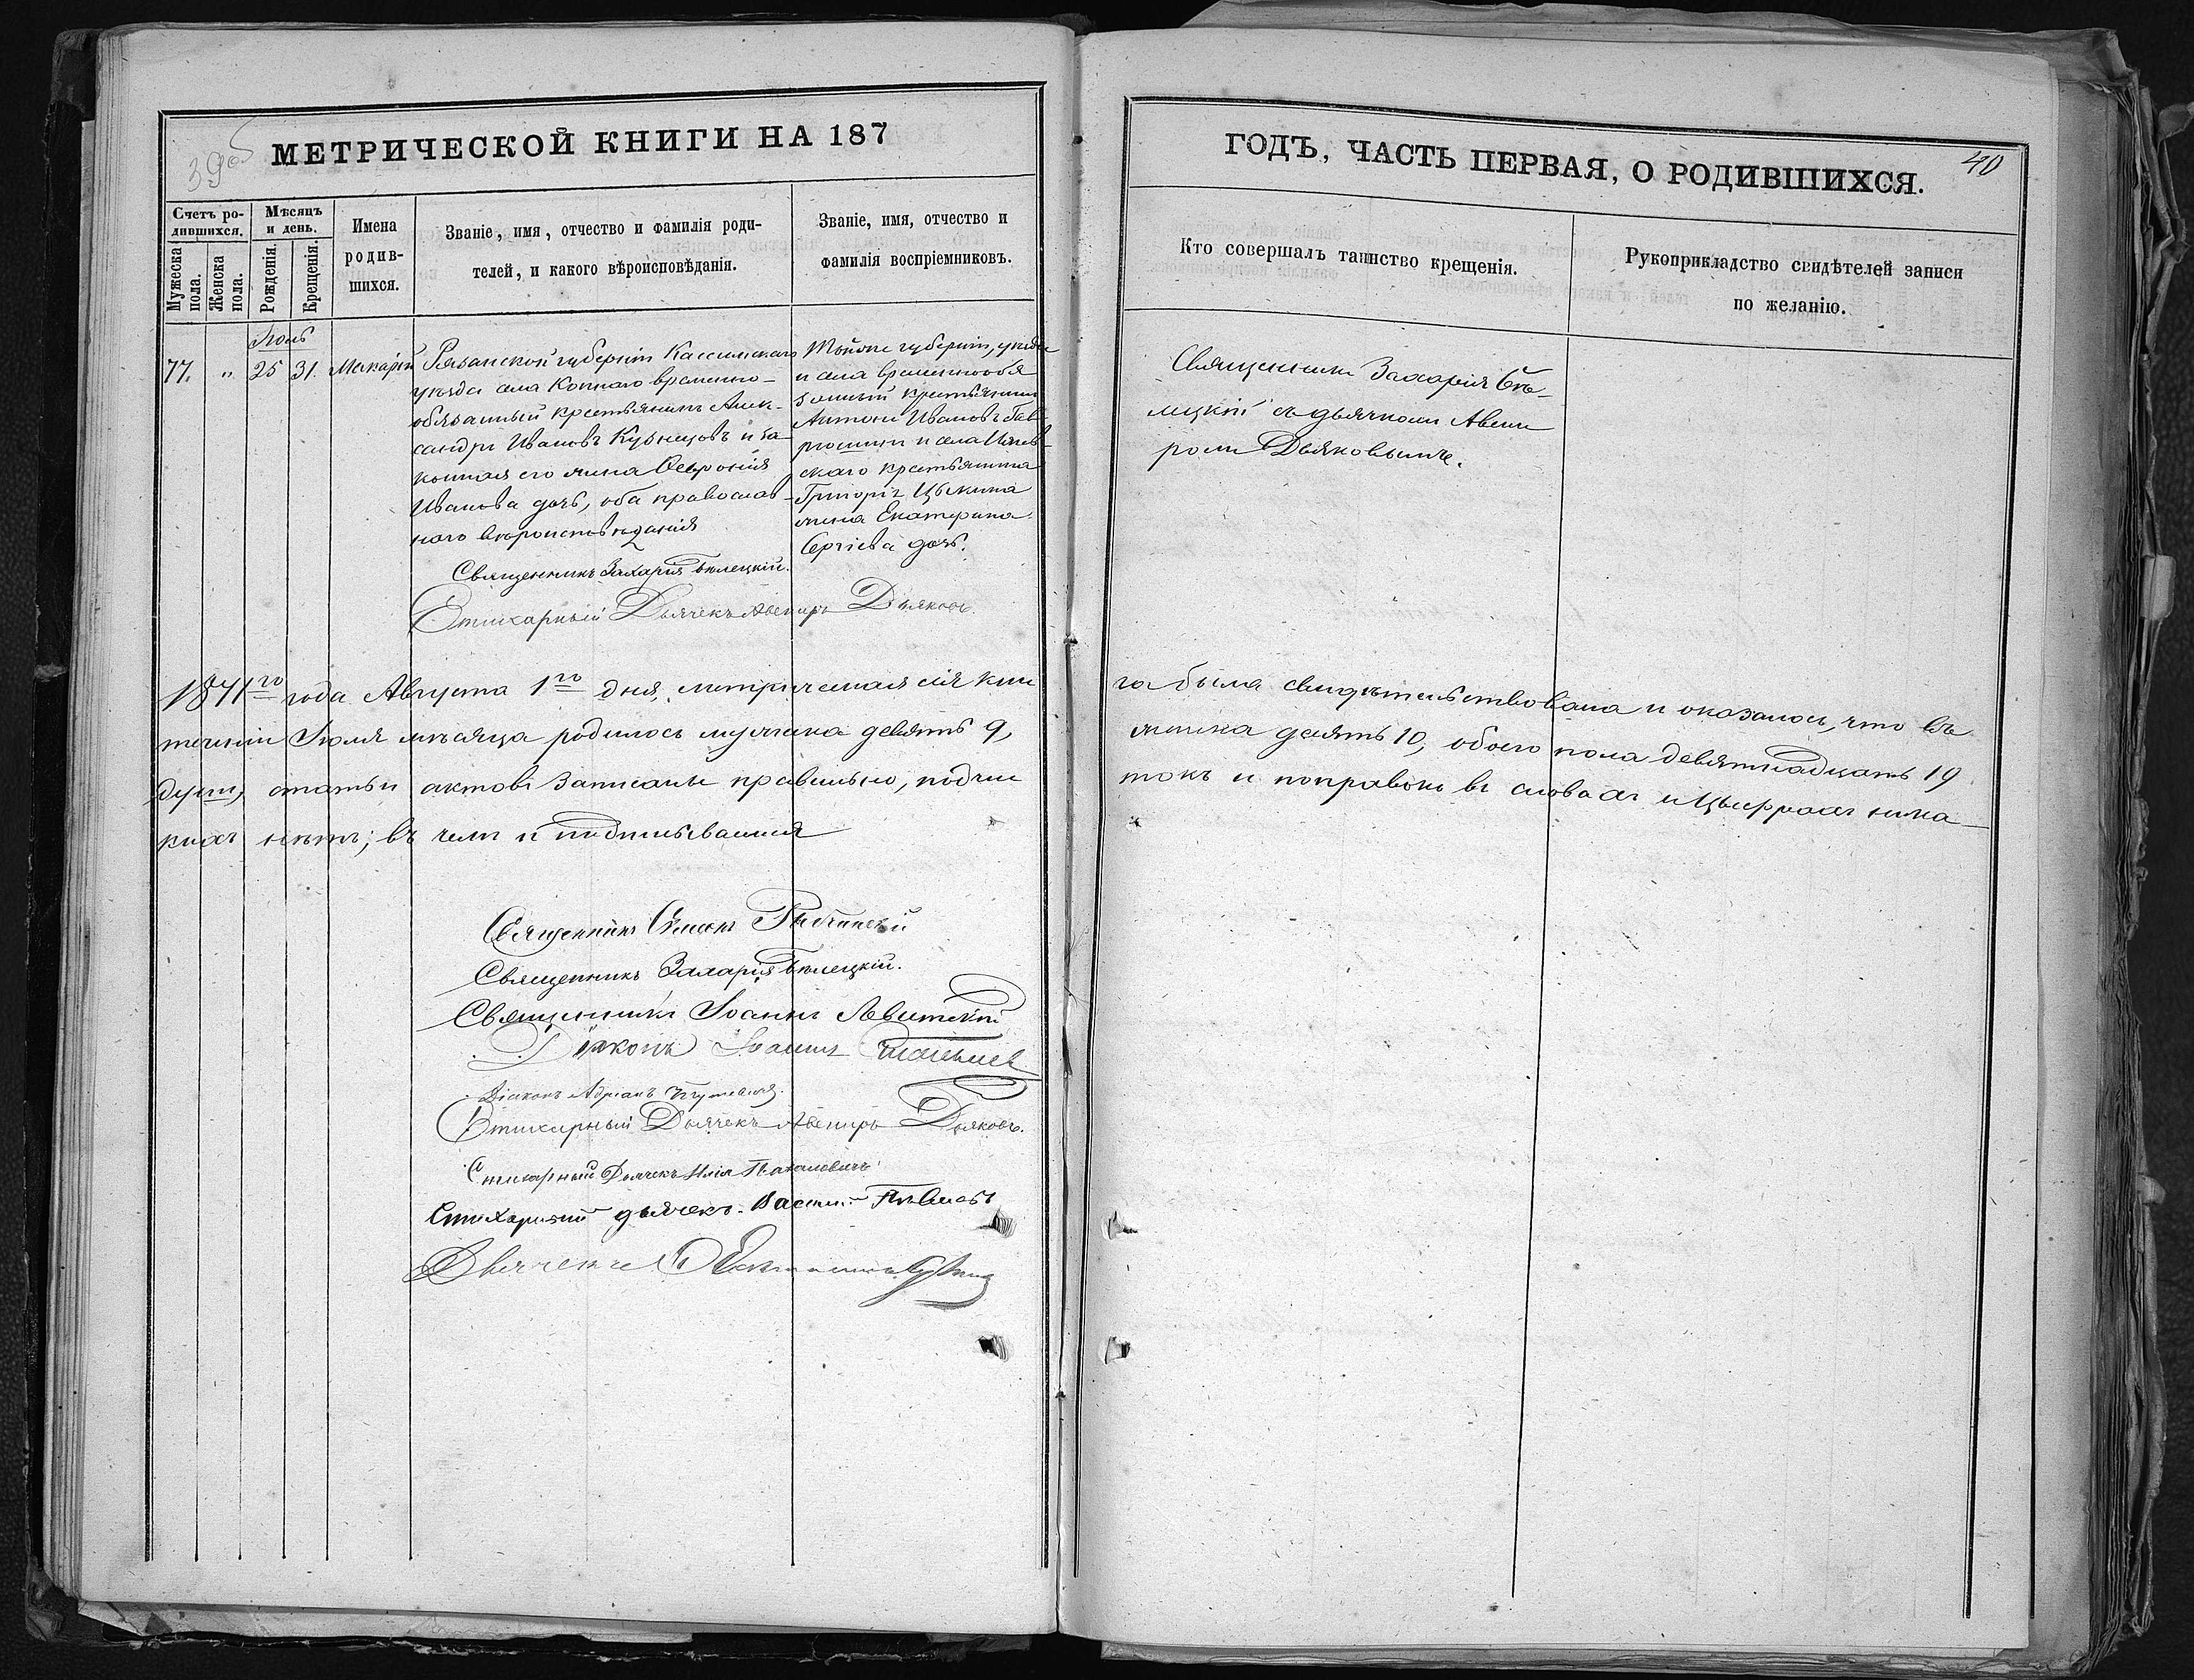 МЕТРИЧЕСКОЙ КНИГИ НА 187
Счетъ ро-
дившихся.
Мѣсяцъ
и день.
Мужеска
пола.
Женска
пола.
Рожденія.
Крещенія.
Имена
родив-
шихся.
Званіе, имя, отчество и фамилія роди-
телей, и какого вѣроисповѣданія.
Званіе, имя, отчество и
фамилія воспріемниковъ.
Іюль
77. " 25 31. Макарій
Рязанской губерніи Кассимскаго
уѣзда села временно-
обязанный крестьянинъ Алек-
сандръ Ивановъ Кузнецовъ и за-
конная его жена Ѳеѳронія
Иванова дочь, оба православ-
наго вѣроисповѣданія
Тойже губерніи, уѣзда
и села временнообя
занный крестьянинъ
Антонъ Ивановъ Гав-
и села
скаго крестьянина
Григорія
жена Екатерина
Сергіева дочь.
Священникъ Захарія Бѣлецкій.
Стихарный Дьячекъ Авениръ Дьяковъ.
1871го года Августа 1го дня, метрическая сія кни
теченіи Іюля мѣсяца родилось мужска девять 9,
душъ, статьи актовъ записаны правильно, подчис
кихъ нѣтъ; въ чемъ и подписываемся
Священникъ Симеонъ
Священникъ Захарія Бѣлецкій.
Священникъ Іоаннъ Левитскій
Діаконъ Іоаннъ
Діаконъ Адріанъ
Стихарный Дьячекъ Авениръ Дьяковъ.
Стихарный Дьячекъ Илія
Стихарный дьячекъ Василій
Дьячекъ
ГОДЪ, ЧАСТЬ ПЕРВАЯ, О РОДИВШИХСЯ.
40
Кто совершалъ таинство крещенія.
Рукоприкладство свидѣтелей записи
по желанію.
Священникъ Захарія Бѣ-
лецкій съ дьячкомъ Авени
ромъ Дьяковымъ.
га была свидѣтельствована и оказалось, что въ
женска десять 10, обоего пола девятнадцать 19
токъ и поправокъ въ словахъ и цыфрахъ ника-